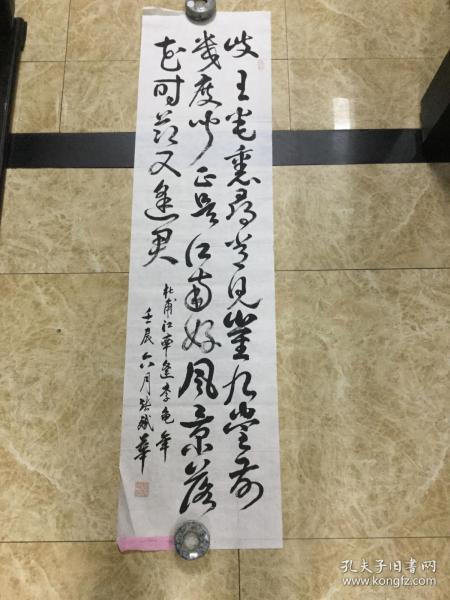 岐王宅裏尋常見崔九堂前
幾度聞正是江南好風景落
花时節又逢君
杜甫江南逢李龟年
壬辰六月张斌華
孔夫子旧书网
www.kongfz.com